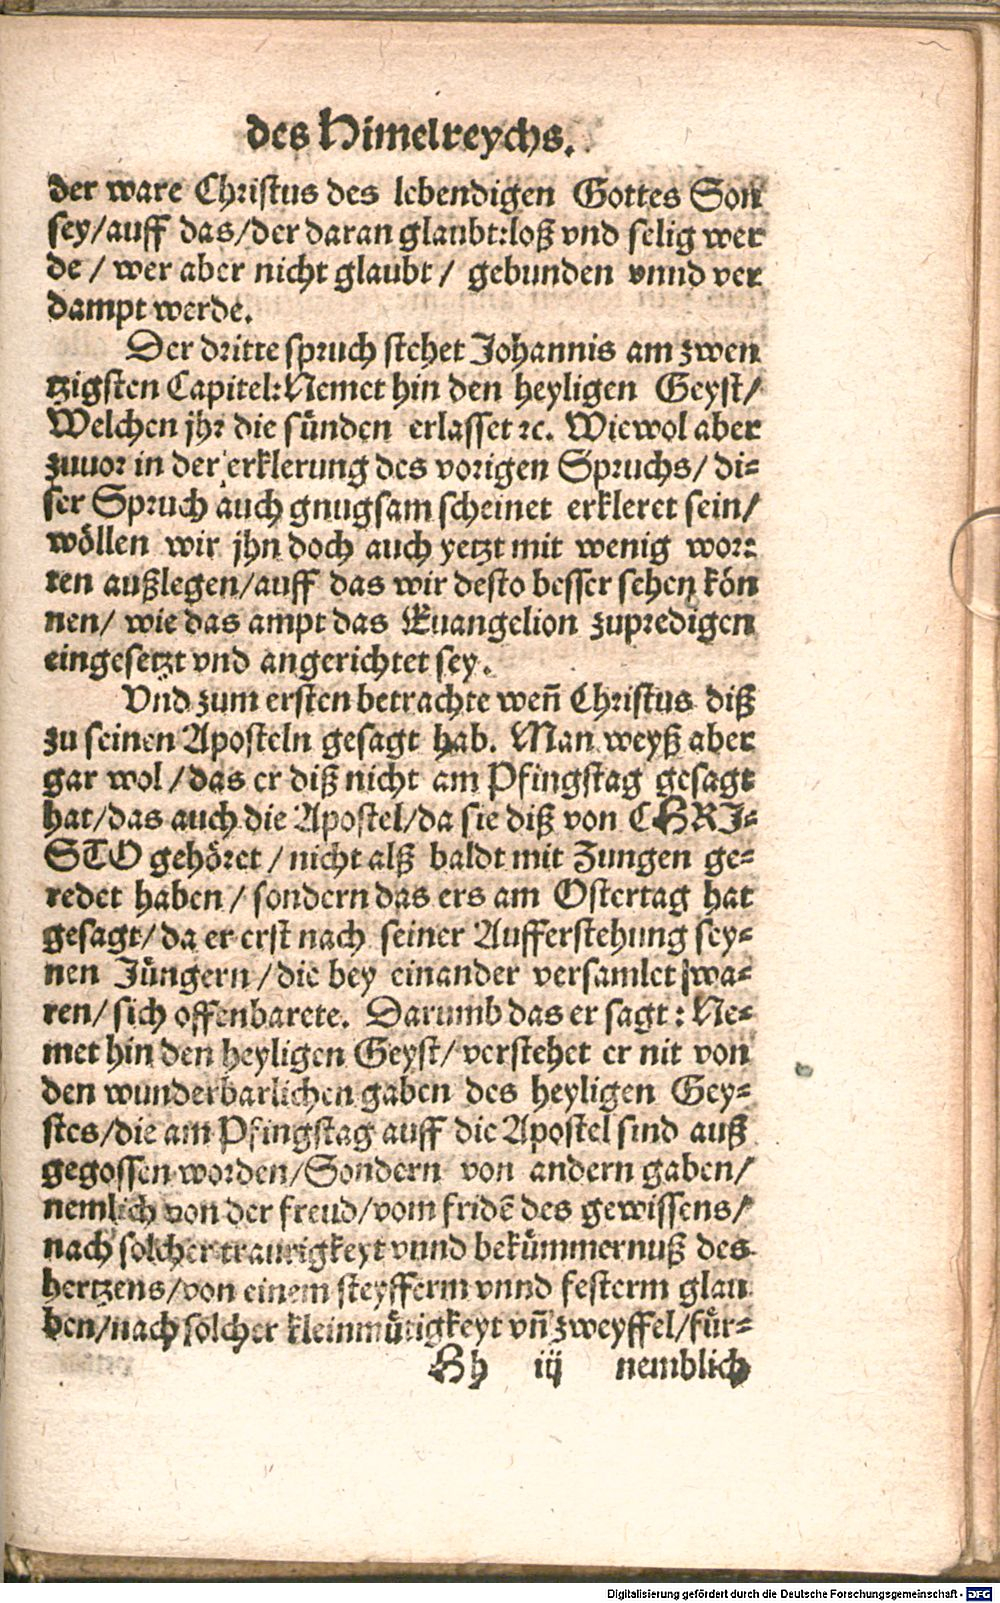 des Himelreychs.
der ware Christus des lebendigen Gottes Son
sey/auff das/der daran glaubt:loß vnd selig wer
de / wer aber nicht glaubt / gebunden vnnd ver
dampt werde.
Der dritte spruch stehet Johannis am zwen
tzigsten Capitel:Nemet hin den heyligen Geyst/
Welchen jhr die sünden erlasset ꝛc. Wiewol aber
zuuor in der erklerung des vorigen Spruchs/ di-
ser Spruch auch gnugsam scheinet erkleret sein/
wöllen wir jhn doch auch yetzt mit wenig wor-
ten außlegen/auff das wir desto besser sehen kön
nen/ wie das ampt das Euangelion zupredigen
eingesetzt vnd angerichtet sey.
Vnd zum ersten betrachte weñ Christus diß
zu seinen Aposteln gesagt hab. Man weyß aber
gar wol /das er diß nicht am Pfingstag gesagt
hat/das auch die Apostel/da sie diß von CHRI-
STO gehöret / nicht alß baldt mit Zungen ge-
redet haben / sondern das ers am Ostertag hat
gesagt/ da er erst nach seiner Aufferstehung sey-
nen Jüngern /die bey einander versamlet wa-
ren/ sich offenbarete. Darumb das er sagt : Ne-
met hin den heyligen Geyst/ verstehet er nit von
den wunderbarlichen gaben des heyligen Gey-
stes/die am Pfingstag auff die Apostel sind auß
gegossen worden/Sondern von andern gaben/
nemlich von der freud/vom fridē des gewissens/
nach solcher traurigkeyt vnnd bekümmernuß des
hertzens/von einem steyfferm vnnd festerm glau
ben/nach solcher kleinmütigkeyt vñ zweyffel/für-
Hh iij nemblich
Digitalisierung gefördert durch die Deutsche Forschungsgemeinschaft - DFG